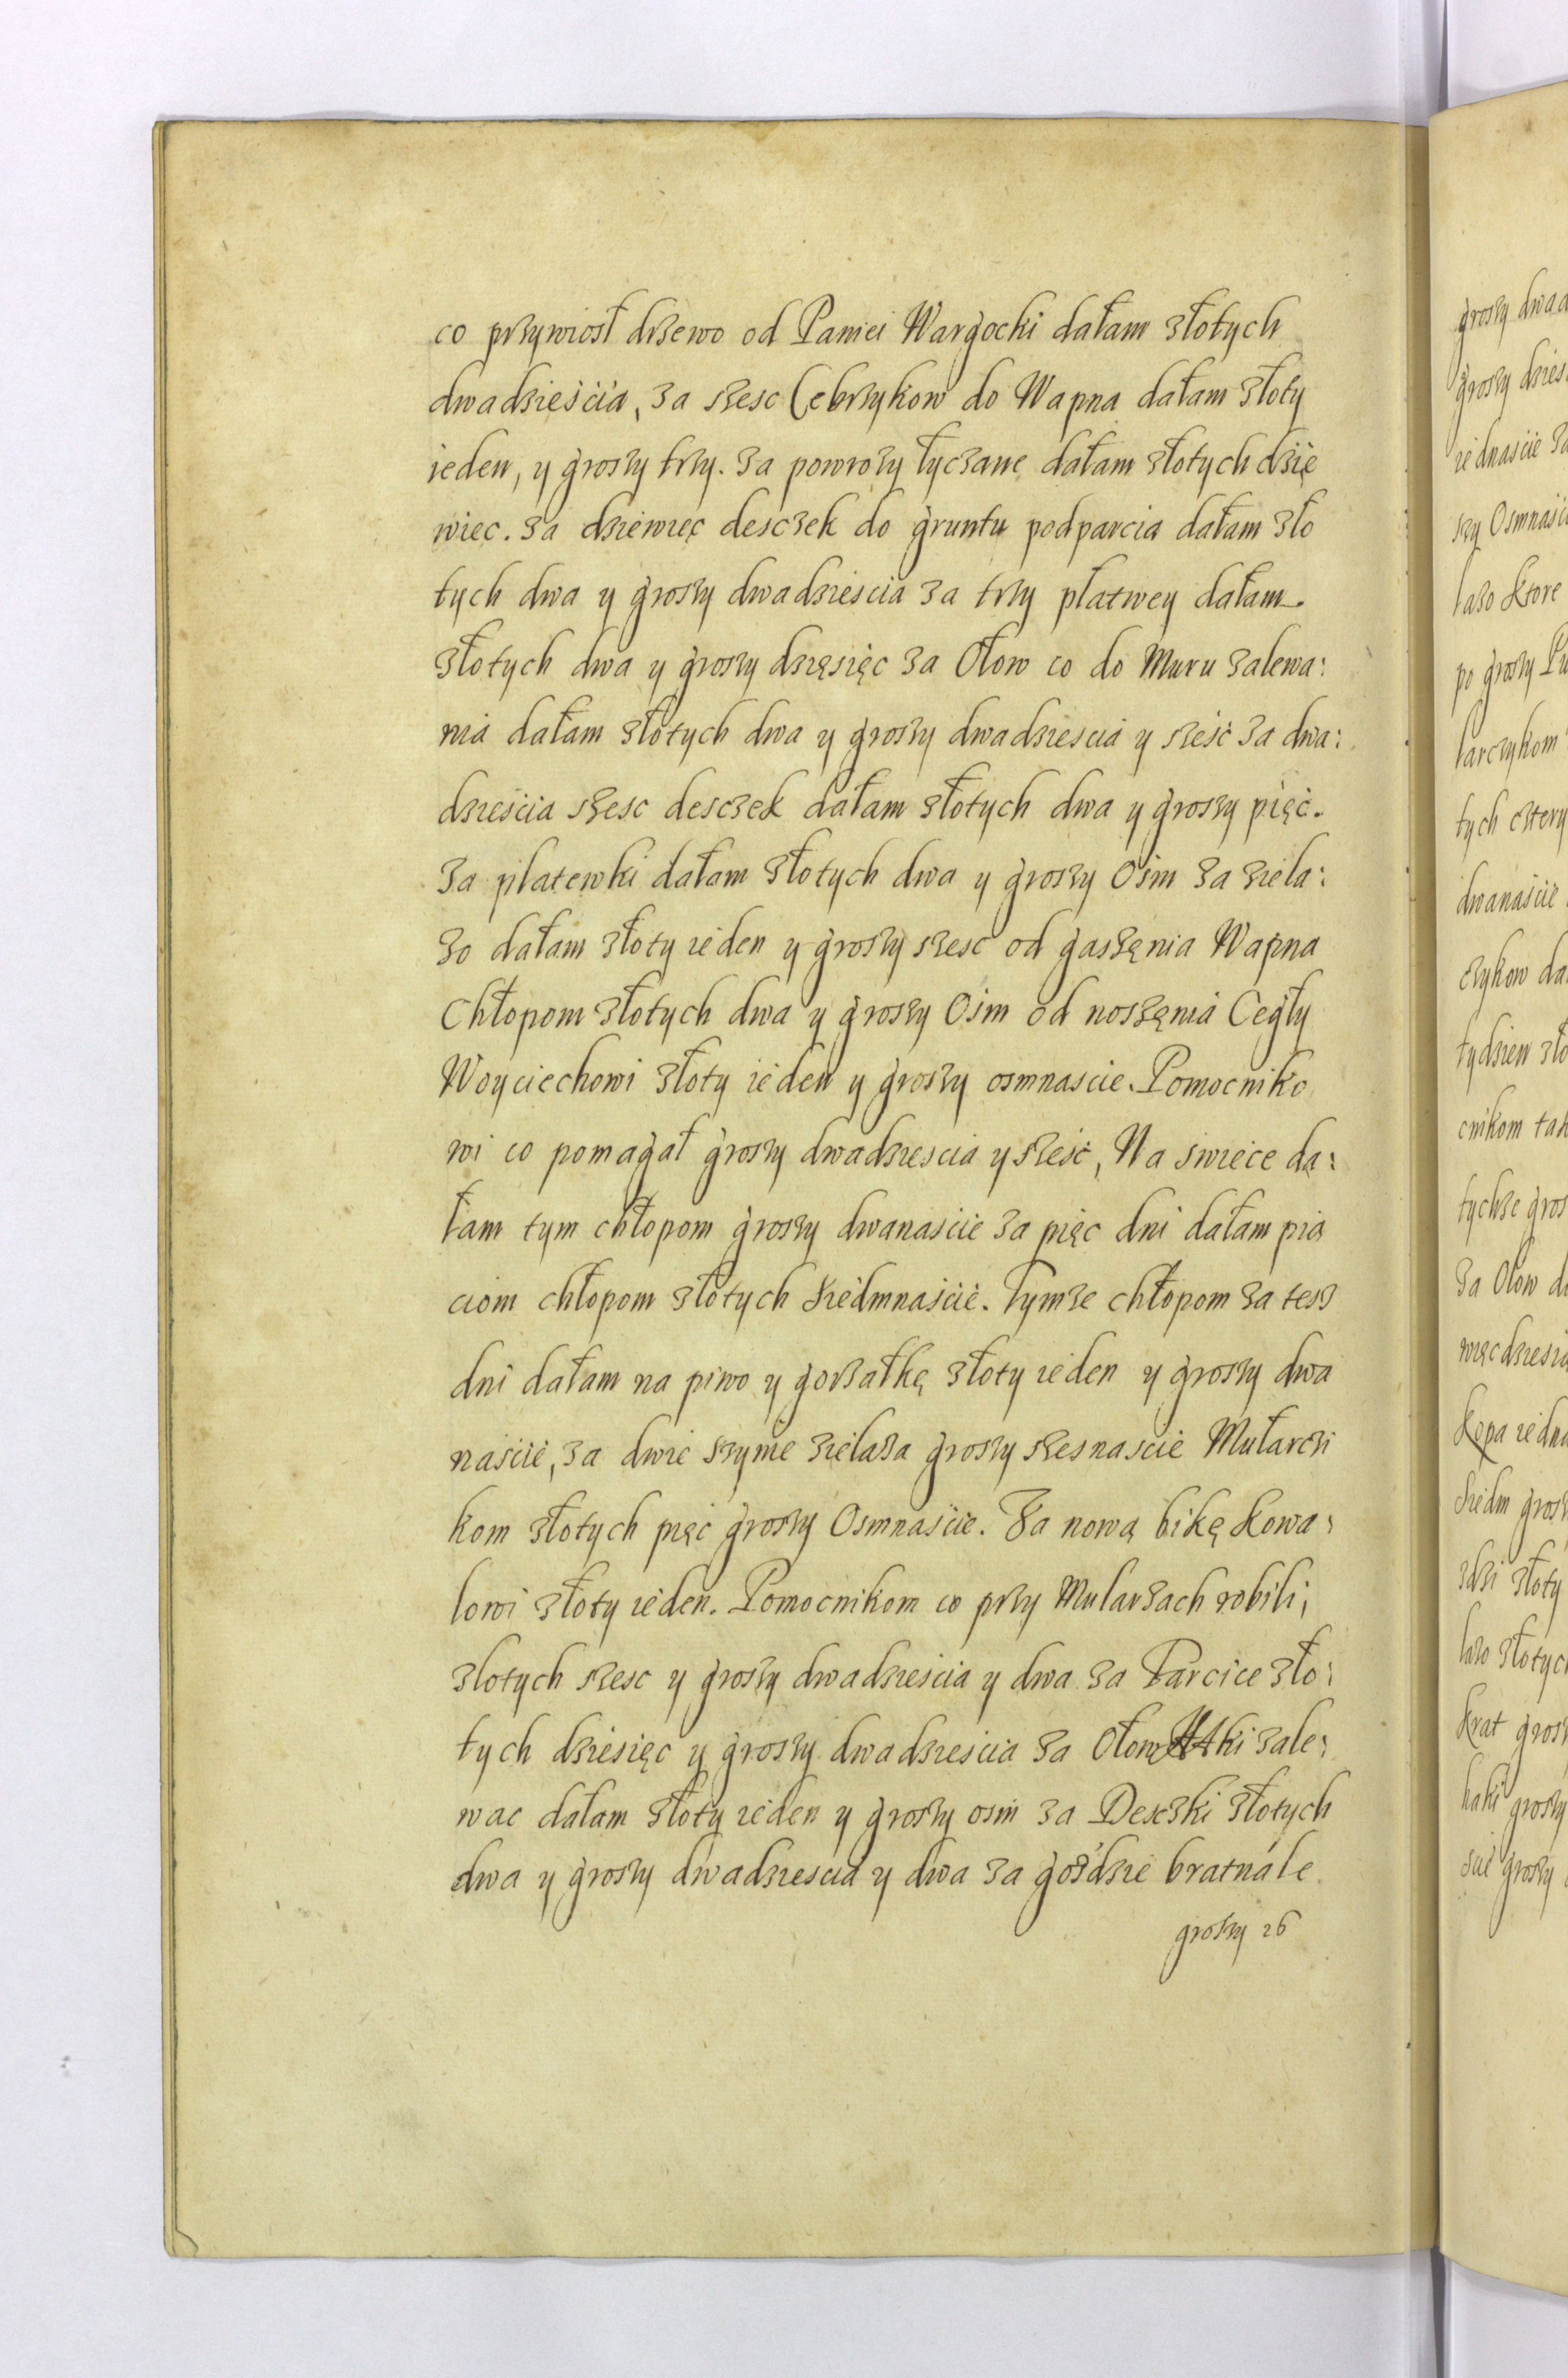 co przywiosł drzewo od Paniei Wargocki dałam złotych
dwadzieścia, za szesc Cebrzykow do Wapna dałam złoty
ieden, y groszy trzy. za powrozy łyczane dałam złotych dzie
wiec. za dziewięc desczek do gruntu podparcia dałam zło
tych dwa y groszy dwadziescia za trzy płatwey dałam
złotych dwa y groszy dzięsięc za Ołow co do Muru zalewa:
nia dałam złotych dwa y groszy dwadziescia y sześć za dwa:
dzieścia szesc desczek dałam złotych dwa y groszy pięć.
za platewki dałam złotych dwa y groszy Osm za ziela:
zo dałam złoty ieden y groszy szesc od gaszęnia Wapna
Chłopom złotych dwa y groszy Osm od noszęnia Cegły
Woyciechowi złoty ieden y groszy osmnascie. Pomocniko
wi co pomagał groszy dwadziescia y sześć, Na swiece da:
łam tym chłopom groszy dwanaście za pięc dni dałam pią
ciom chłopom złotych siedmnaście. Tymze chłopom za tesz
dni dałam na piwo y gorzałkę złoty ieden y groszy dwa
naście, za dwie szynie zielaza groszy szesnascie Mularczi
kom złotych pięć groszy Osmnaście. Za nową bikę kowa:
lowi złoty ieden. Pomocnikom co przy Mularzach robili,
zlotych szesc y groszy dwadzieścia y dwa za Tarcice zło:
tych dziesięc y groszy dwadziescia za Ołow ki zale:
wac dałam złoty ieden y groszy osm za Desczki złotych
dwa y groszy dwadziescia y dwa za goździe bratnále
groszy 26
groszy dwa
groszy dzies
iednascie za
szy Osmnaści
lazo ktore
po groszy
larczykom
tych cztery
dwanaście
czykow da
tydzien zło
cnikom tak
tychze gros
za Ołow d
więcdziesią
kopa iedna
siedm gros
zdzi złoty
lazo złotych
krat gros
haki groszy
scie groszy